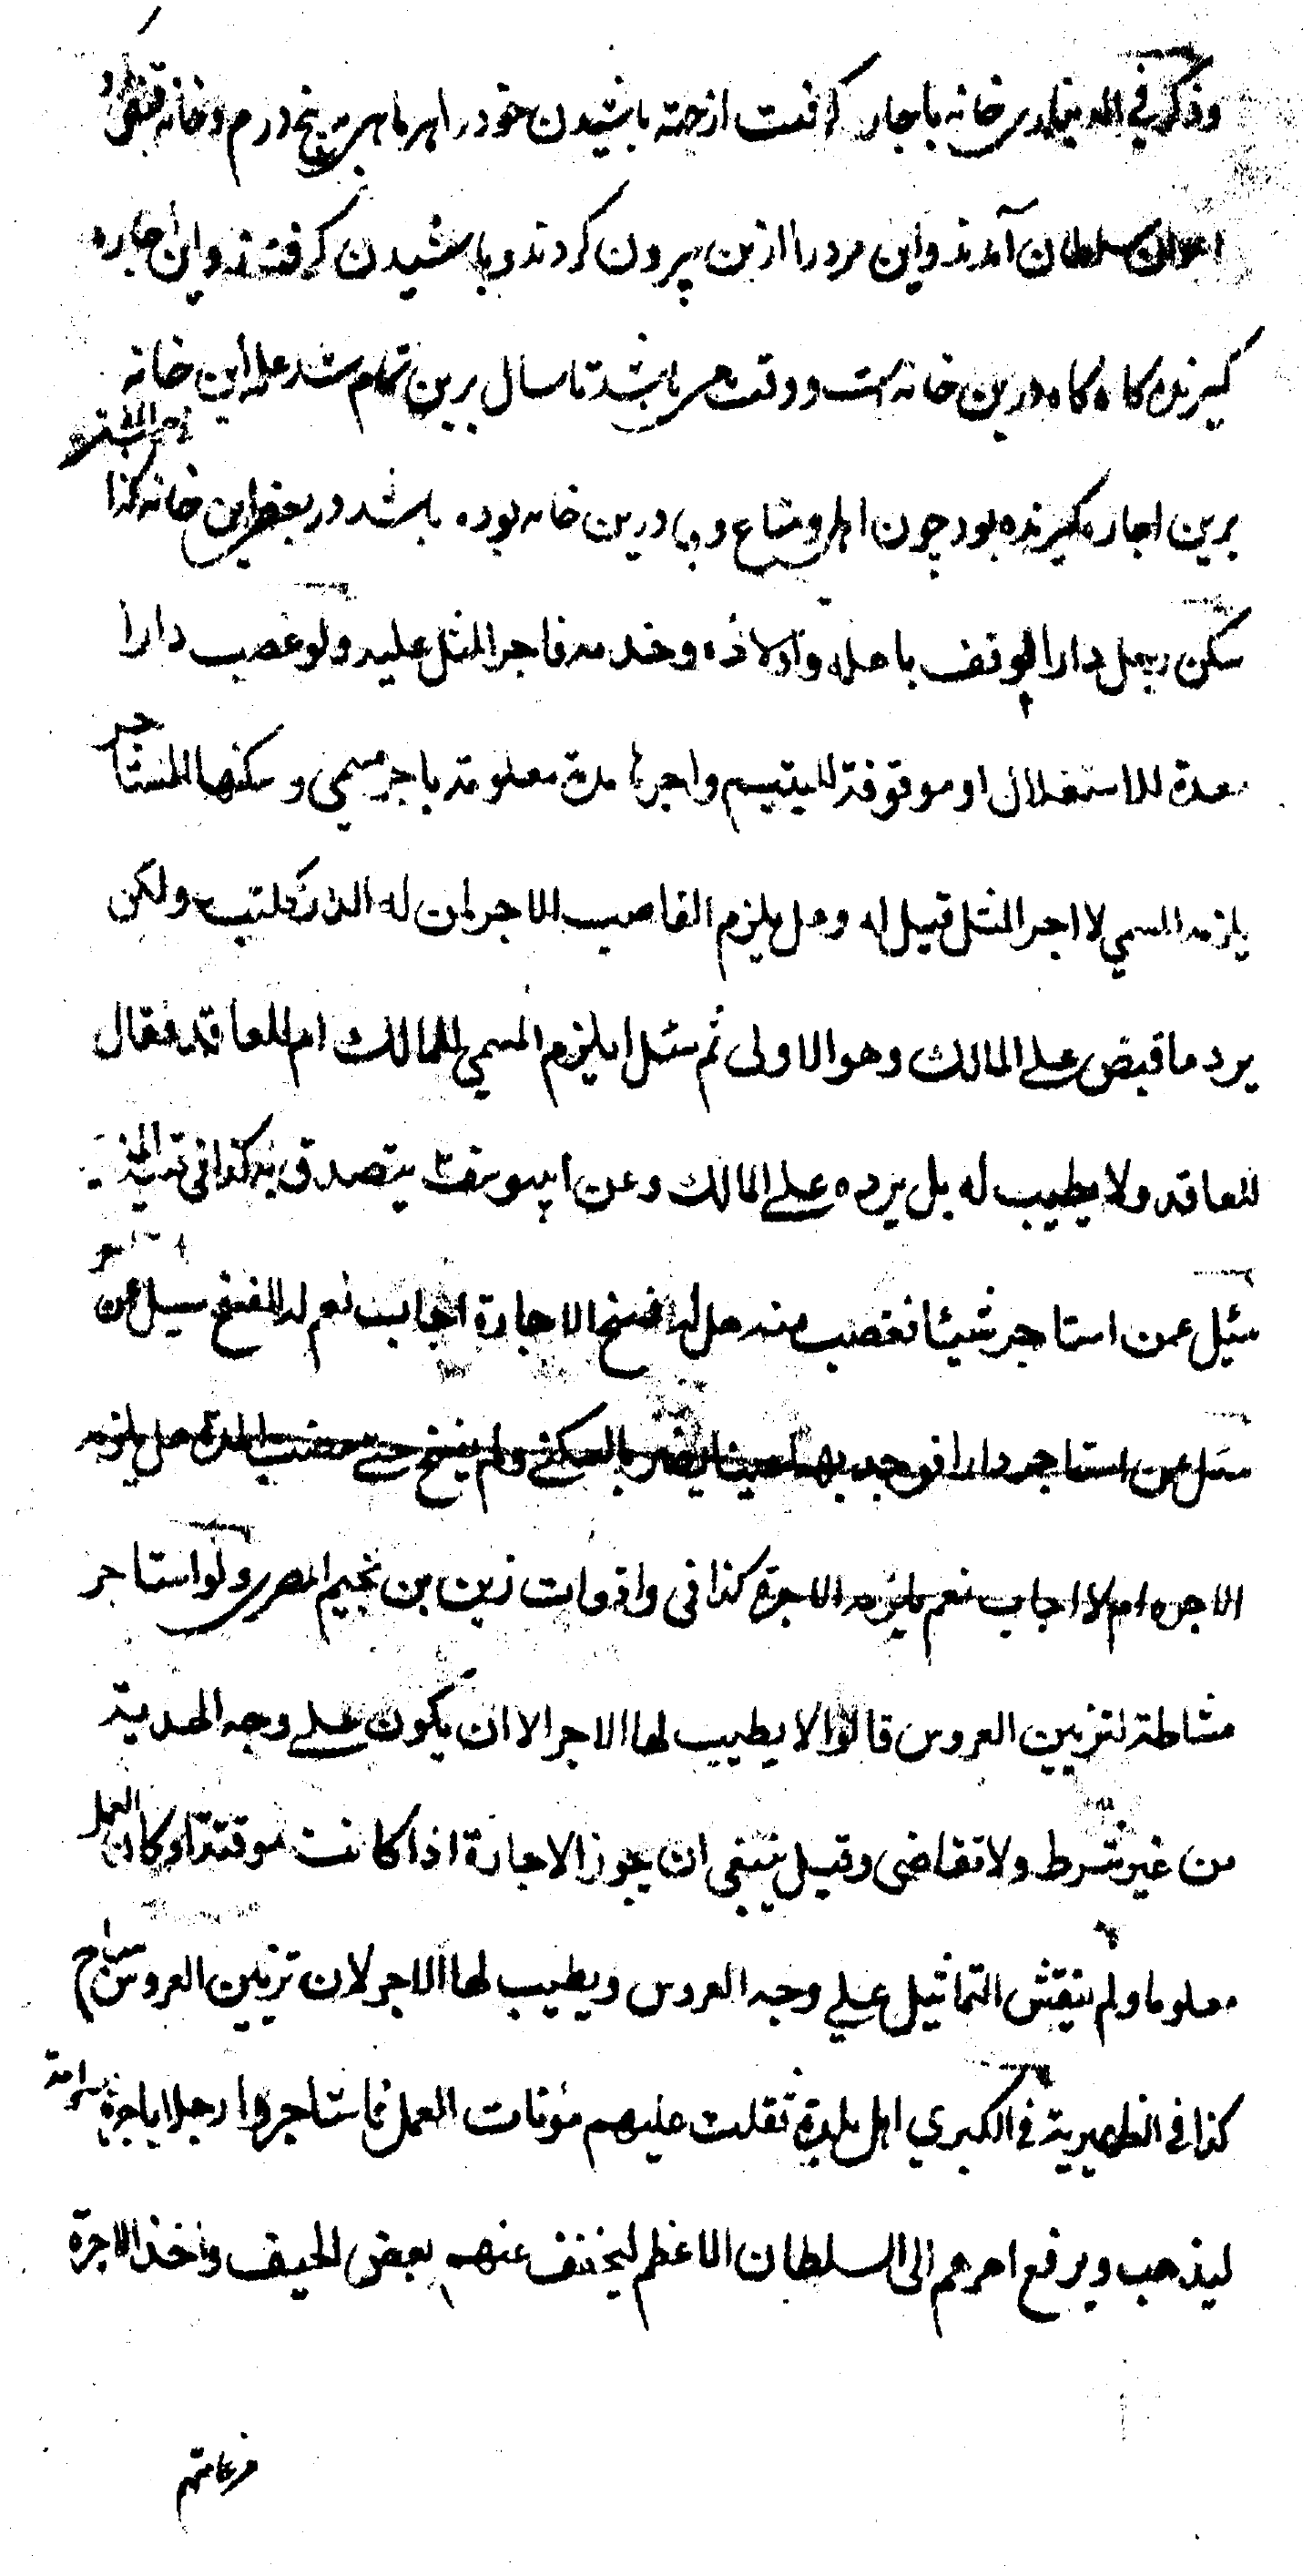 وذكر في الدينار خانه باجار كرفت از جهة باشيدن خود را هر ماهي به پنج درم وخانه قبض كرد
اعوان سلطان آمدند واين مرد را ازين بيرون كردند وباشيدن كرفتند واين اجاره
كيرنده كاه كاه درين خانه است ووقت باشد تا سال برين تمام شد غله اين خانه
برين اجاره كيرنده بود چون اهل ومتاع وى درين خانه بوده باشد در بعض اين خانه كذا
سكن رجل دار الوقف باهله واولاده وخدمه فاجر المثل عليه ولو غصب دارا
معدة للاستغلال او موقوفة لليتيم واجرها مدة معلومة باجر مسمى وسكنها المستاجر
يلزمه المسمي لا اجر المثل قيل له وهل يلزم الغاصب الاجر لمن له الدار فكتب ولكن
يرد ما قبض على المالك وهو الاولى ثم سئل ايلزم المسمي للمالك ام للعاقد فقال
للعاقد ولا يطيب له بل يرده على المالك وعن ابيوسف يتصدق به كذا في قنية المنية
سئل عمن استاجر شيئا فغصب منه هل له فسخ الاجارة اجاب نعم له الفسخ سيل عن
سئل عن استاجر دارا فوجد بها عيبا يضر بالسكنى ولم يفسخ حتى مضت المدة هل يلزمه
الاجره ام لا اجاب نعم يلزمه الاجرة كذا في واقعات زين بن نجيم المصرى ولو استاجر
مشاطة لتزيين العروس قالوا لا يطيب لها الاجر الا ان يكون على وجه الهدية
من غير شرط ولا تقاضى وقيل ينبغى ان يجوز الاجارة اذا كانت موقتة او كان العمل
معلوما ولم ينقش التماثيل علي وجه العروس ويطيب لها الاجر لان تزيين العروس مباح
كذا في الظهيرية في الكبري اهل بلدة ثقلت عليهم مؤنات العمل فاستاجروا رجلا باجرة معلومة
ليذهب ويرفع امرهم الى السلطان الاعظم ليخفف عنهم بعض الحيف واخذ الاجرة